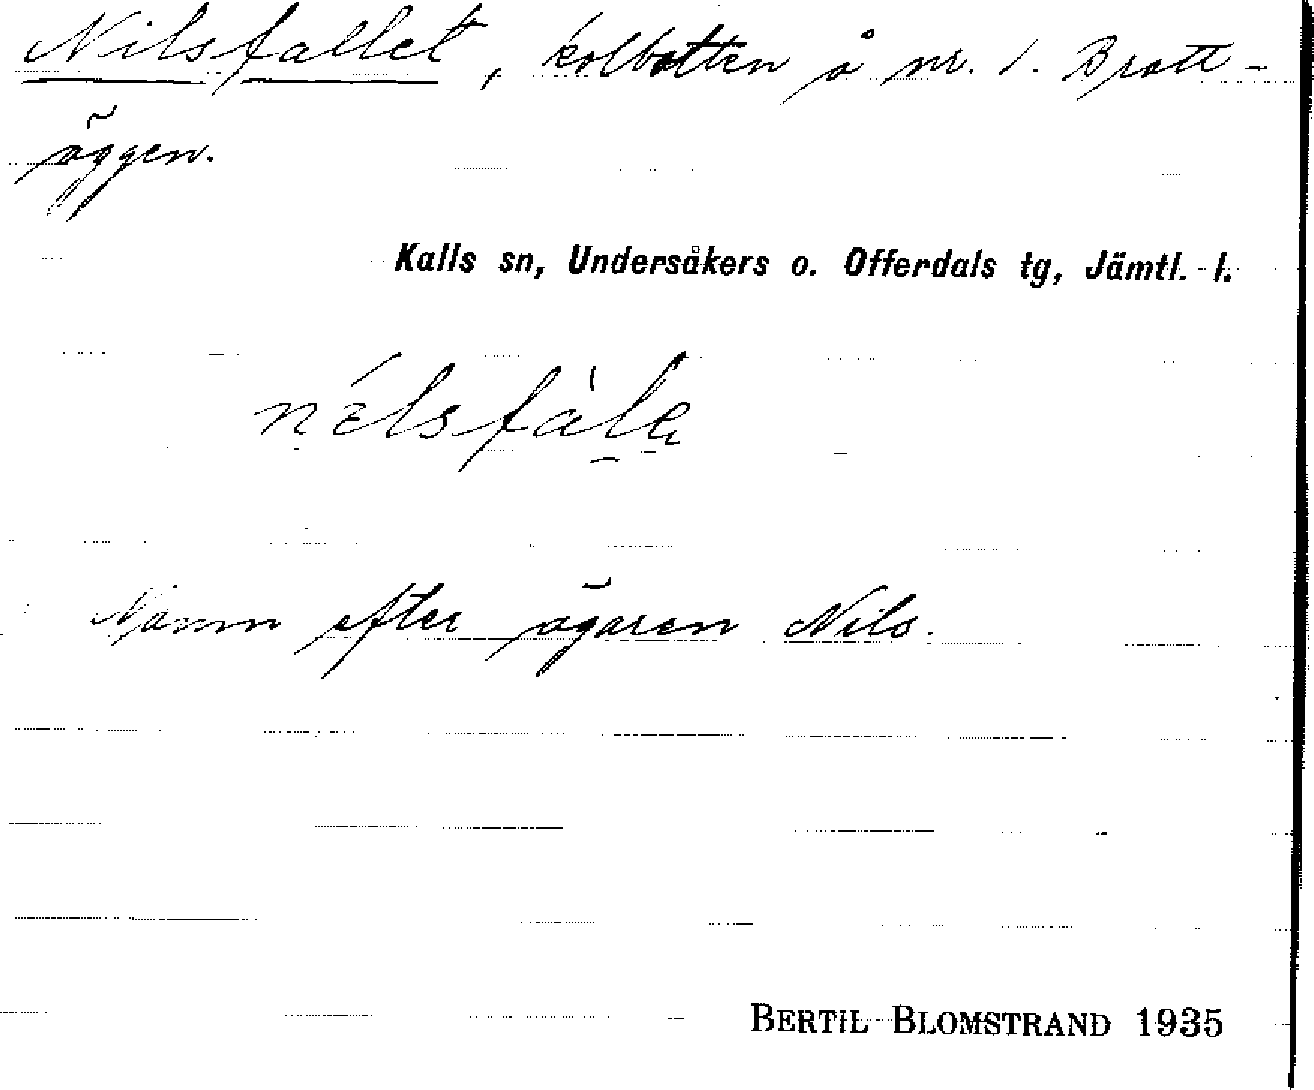 Nilsfallet, kolbotten å nr. 1. Bratt-
äggen.
Kalls sn, Undersåkers o. Offerdals tg, Jämtl. l.
Namn efter ägaren Nils.
BERTIL BLOMSTRAND 1935